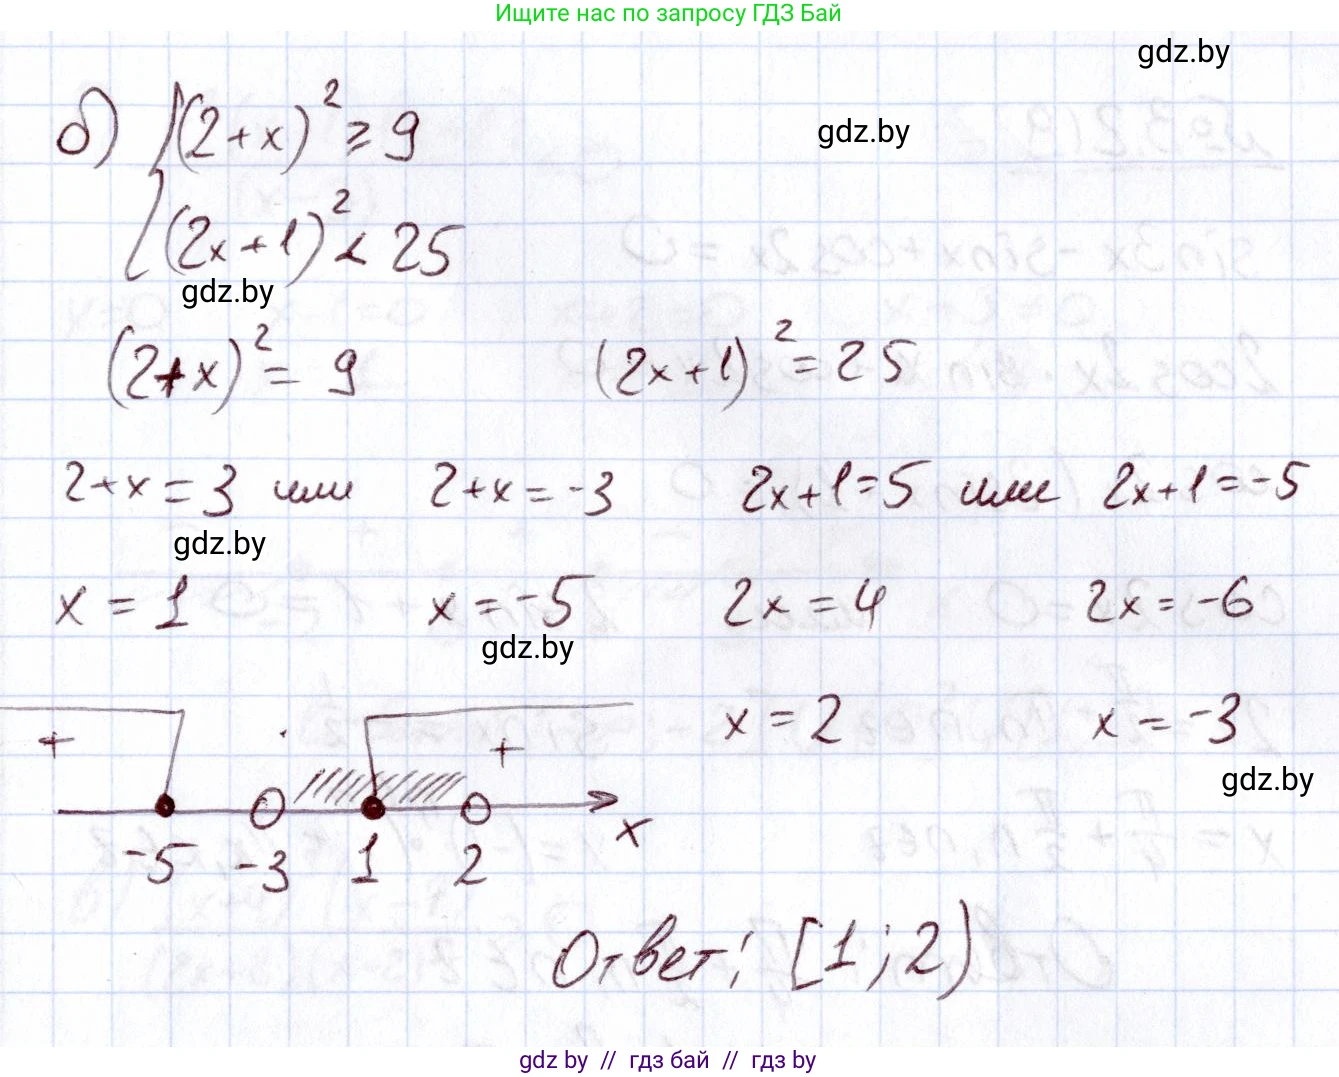 Ищите нас по запросу ГДЗ Бай
gdz.by
б) { (2+x)² ≥ 9
gdz.by
(2x+1)² < 25
gdz.by
(2+x)² = 9 (2x+1)² = 25
2+x = 3 или 2+x = -3 2x+1=5 или 2x+1=-5
gdz.by
x = 1 x = -5 2x = 4 2x = -6
gdz.by
x = 2 x = -3
gdz.by
+ +
-5 -3 1 2 x
Ответ: [1; 2)
gdz by // гдз бай // гдз by